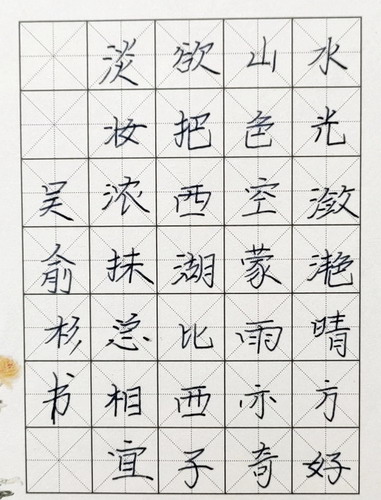 水光潋滟晴方好
山色空蒙雨亦奇
欲把西湖比西子
淡妆浓抹急相宜
吴俞杉书